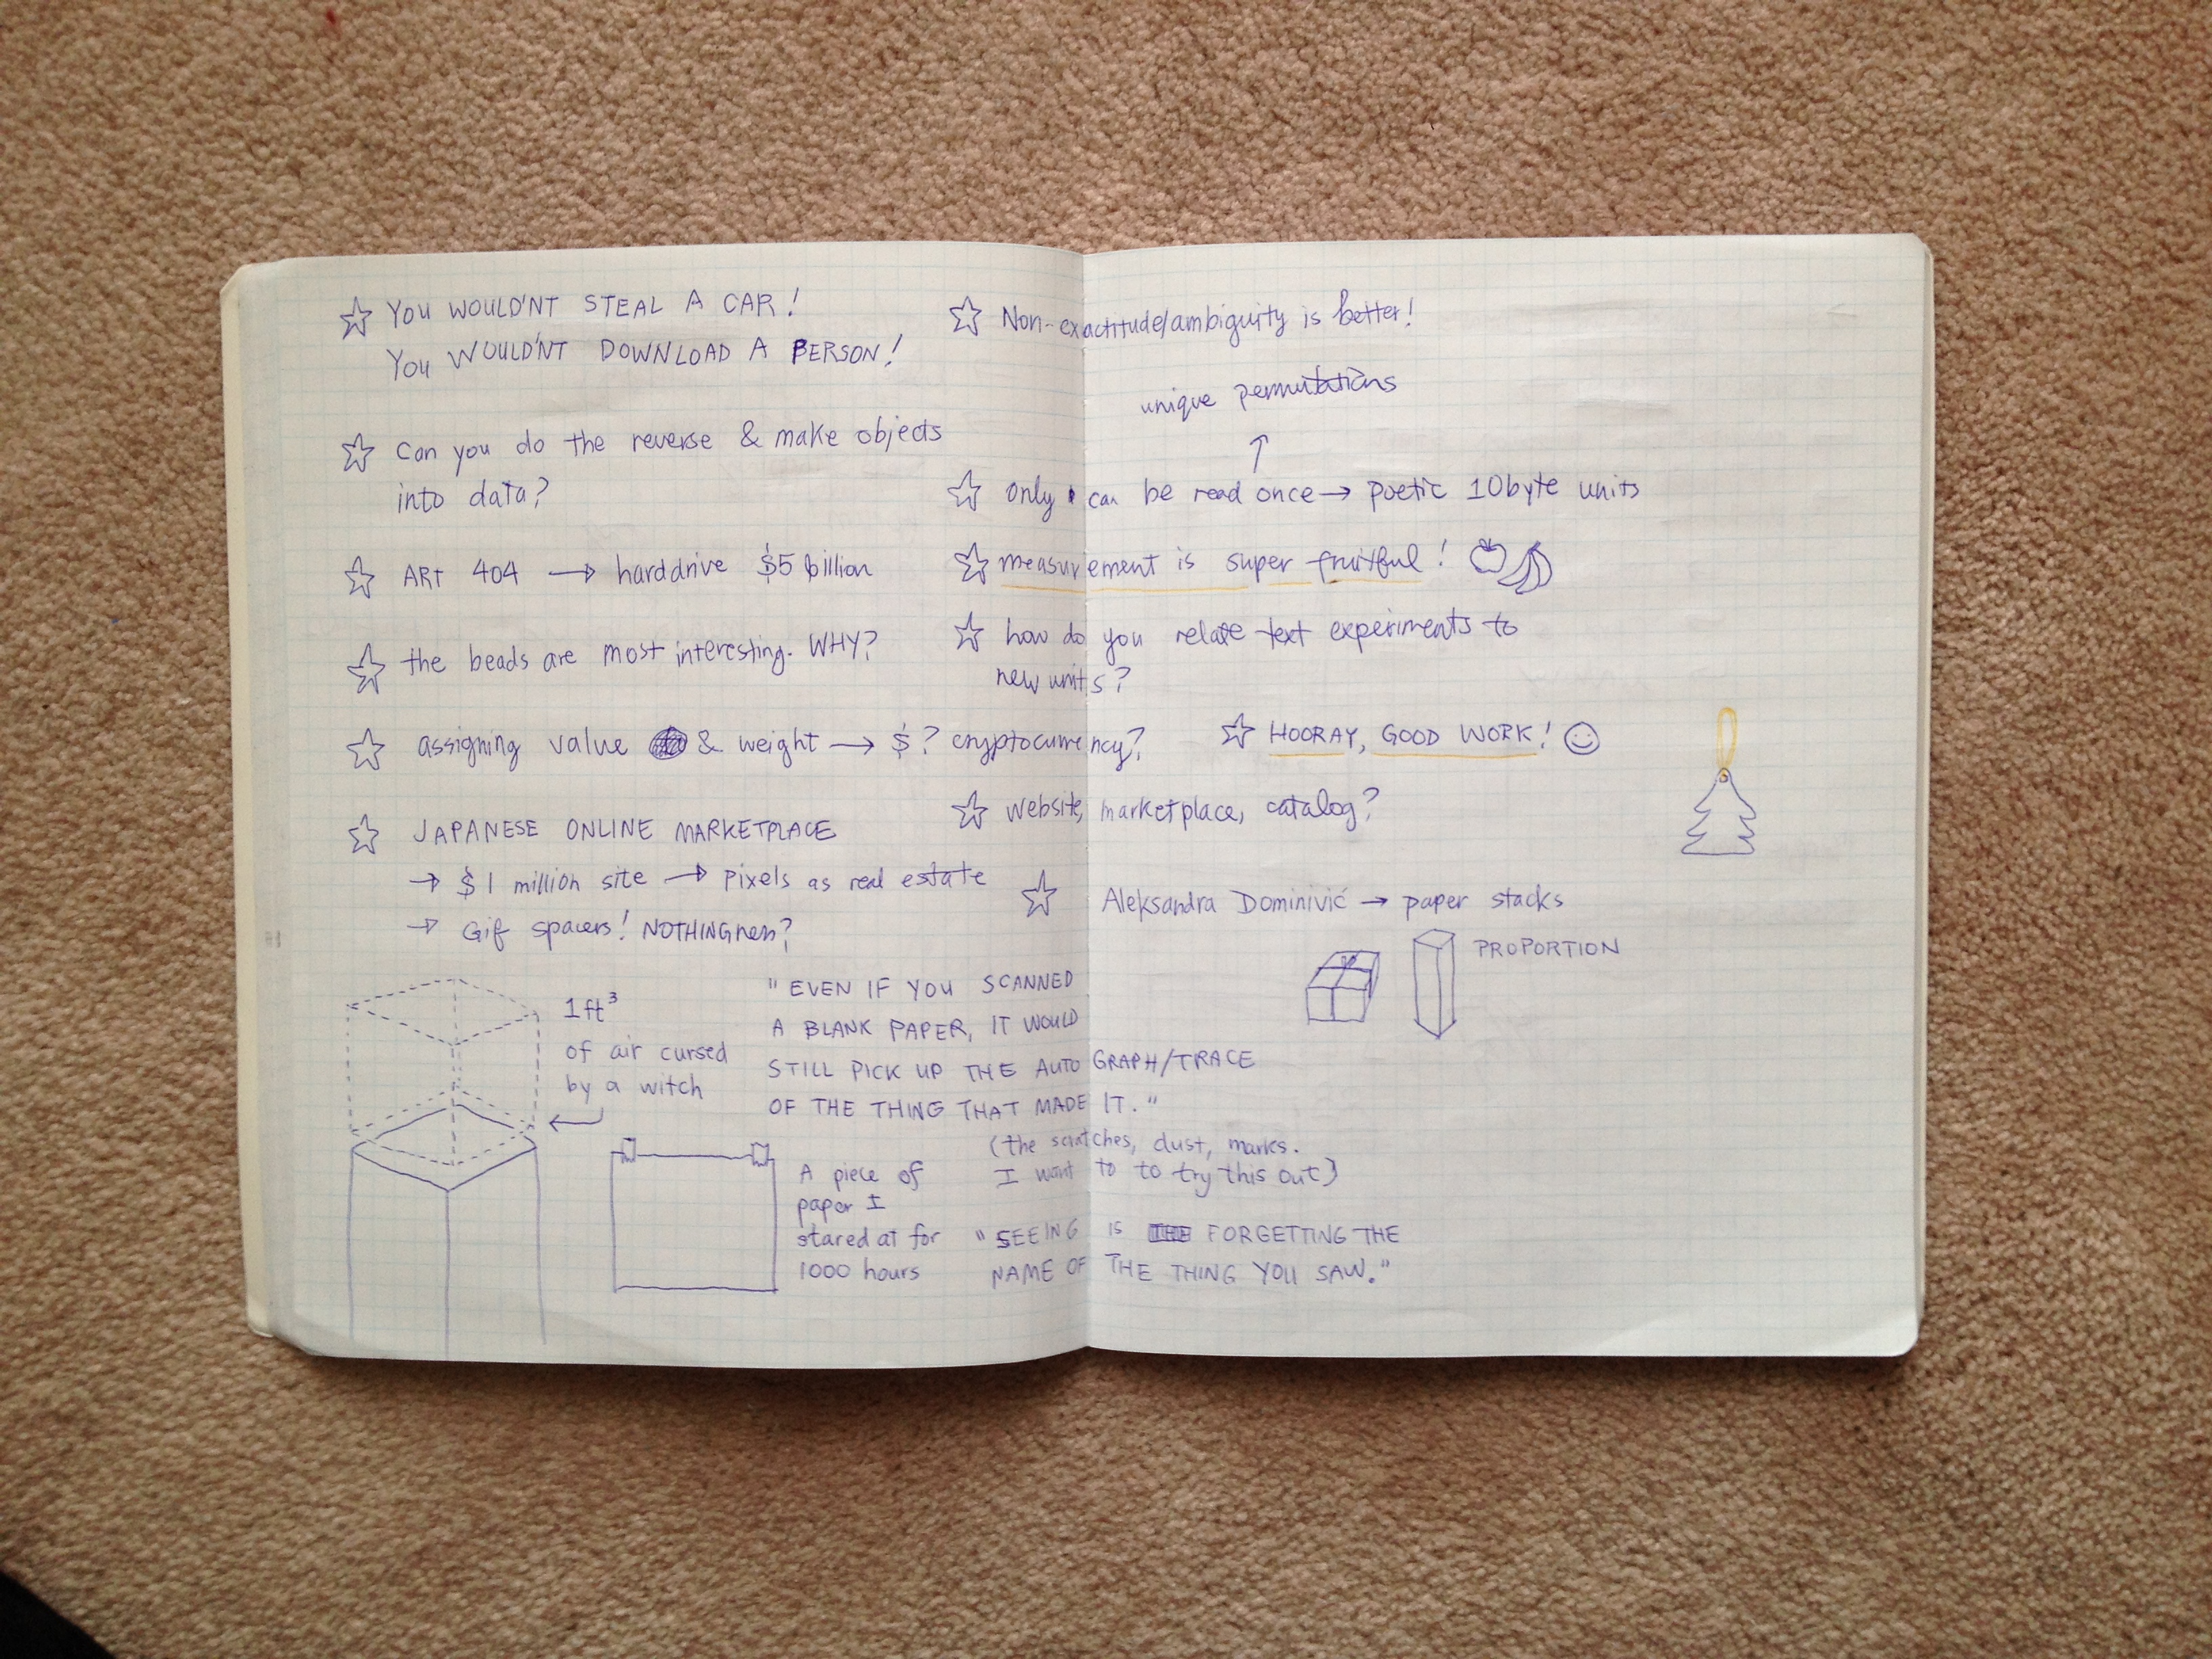 YOU WOULD'NT STEAL A CAR!
YOU WOULD'NT DOWNLOAD A PERSON!
Can you do the reverse & make objects
into data?
ART 404 → harddrive $5 billion
the beads are most interesting. WHY?
assigning value & weight → $? cryptocurrency?
JAPANESE ONLINE MARKETPLACE
→ $1 million site → pixels as real estate
→ Gif spacers! NOTHINGness?
1ft³
of air cursed
by a witch
"EVEN IF YOU SCANNED
A BLANK PAPER, IT WOULD
STILL PICK UP THE AUTOGRAPH/TRACE
OF THE THING THAT MADE IT."
(the scratches, dust, marks.
I want to to try this out)
A piece of
paper I
stared at for
1000 hours
"SEEING IS FORGETTING THE
NAME OF THE THING YOU SAW."
Non-exactitude/ambiguity is better!
unique permutations
↑
only can be read once → poetic 10byte units
measurement is super fruitful!
how do you relate text experiments to
new units?
HOORAY, GOOD WORK!
website, marketplace, catalog?
Aleksandra Dominivić → paper stacks
PROPORTION